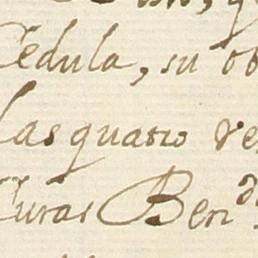 Cedula, su ob
Las quatro ve
Curas Ben.do